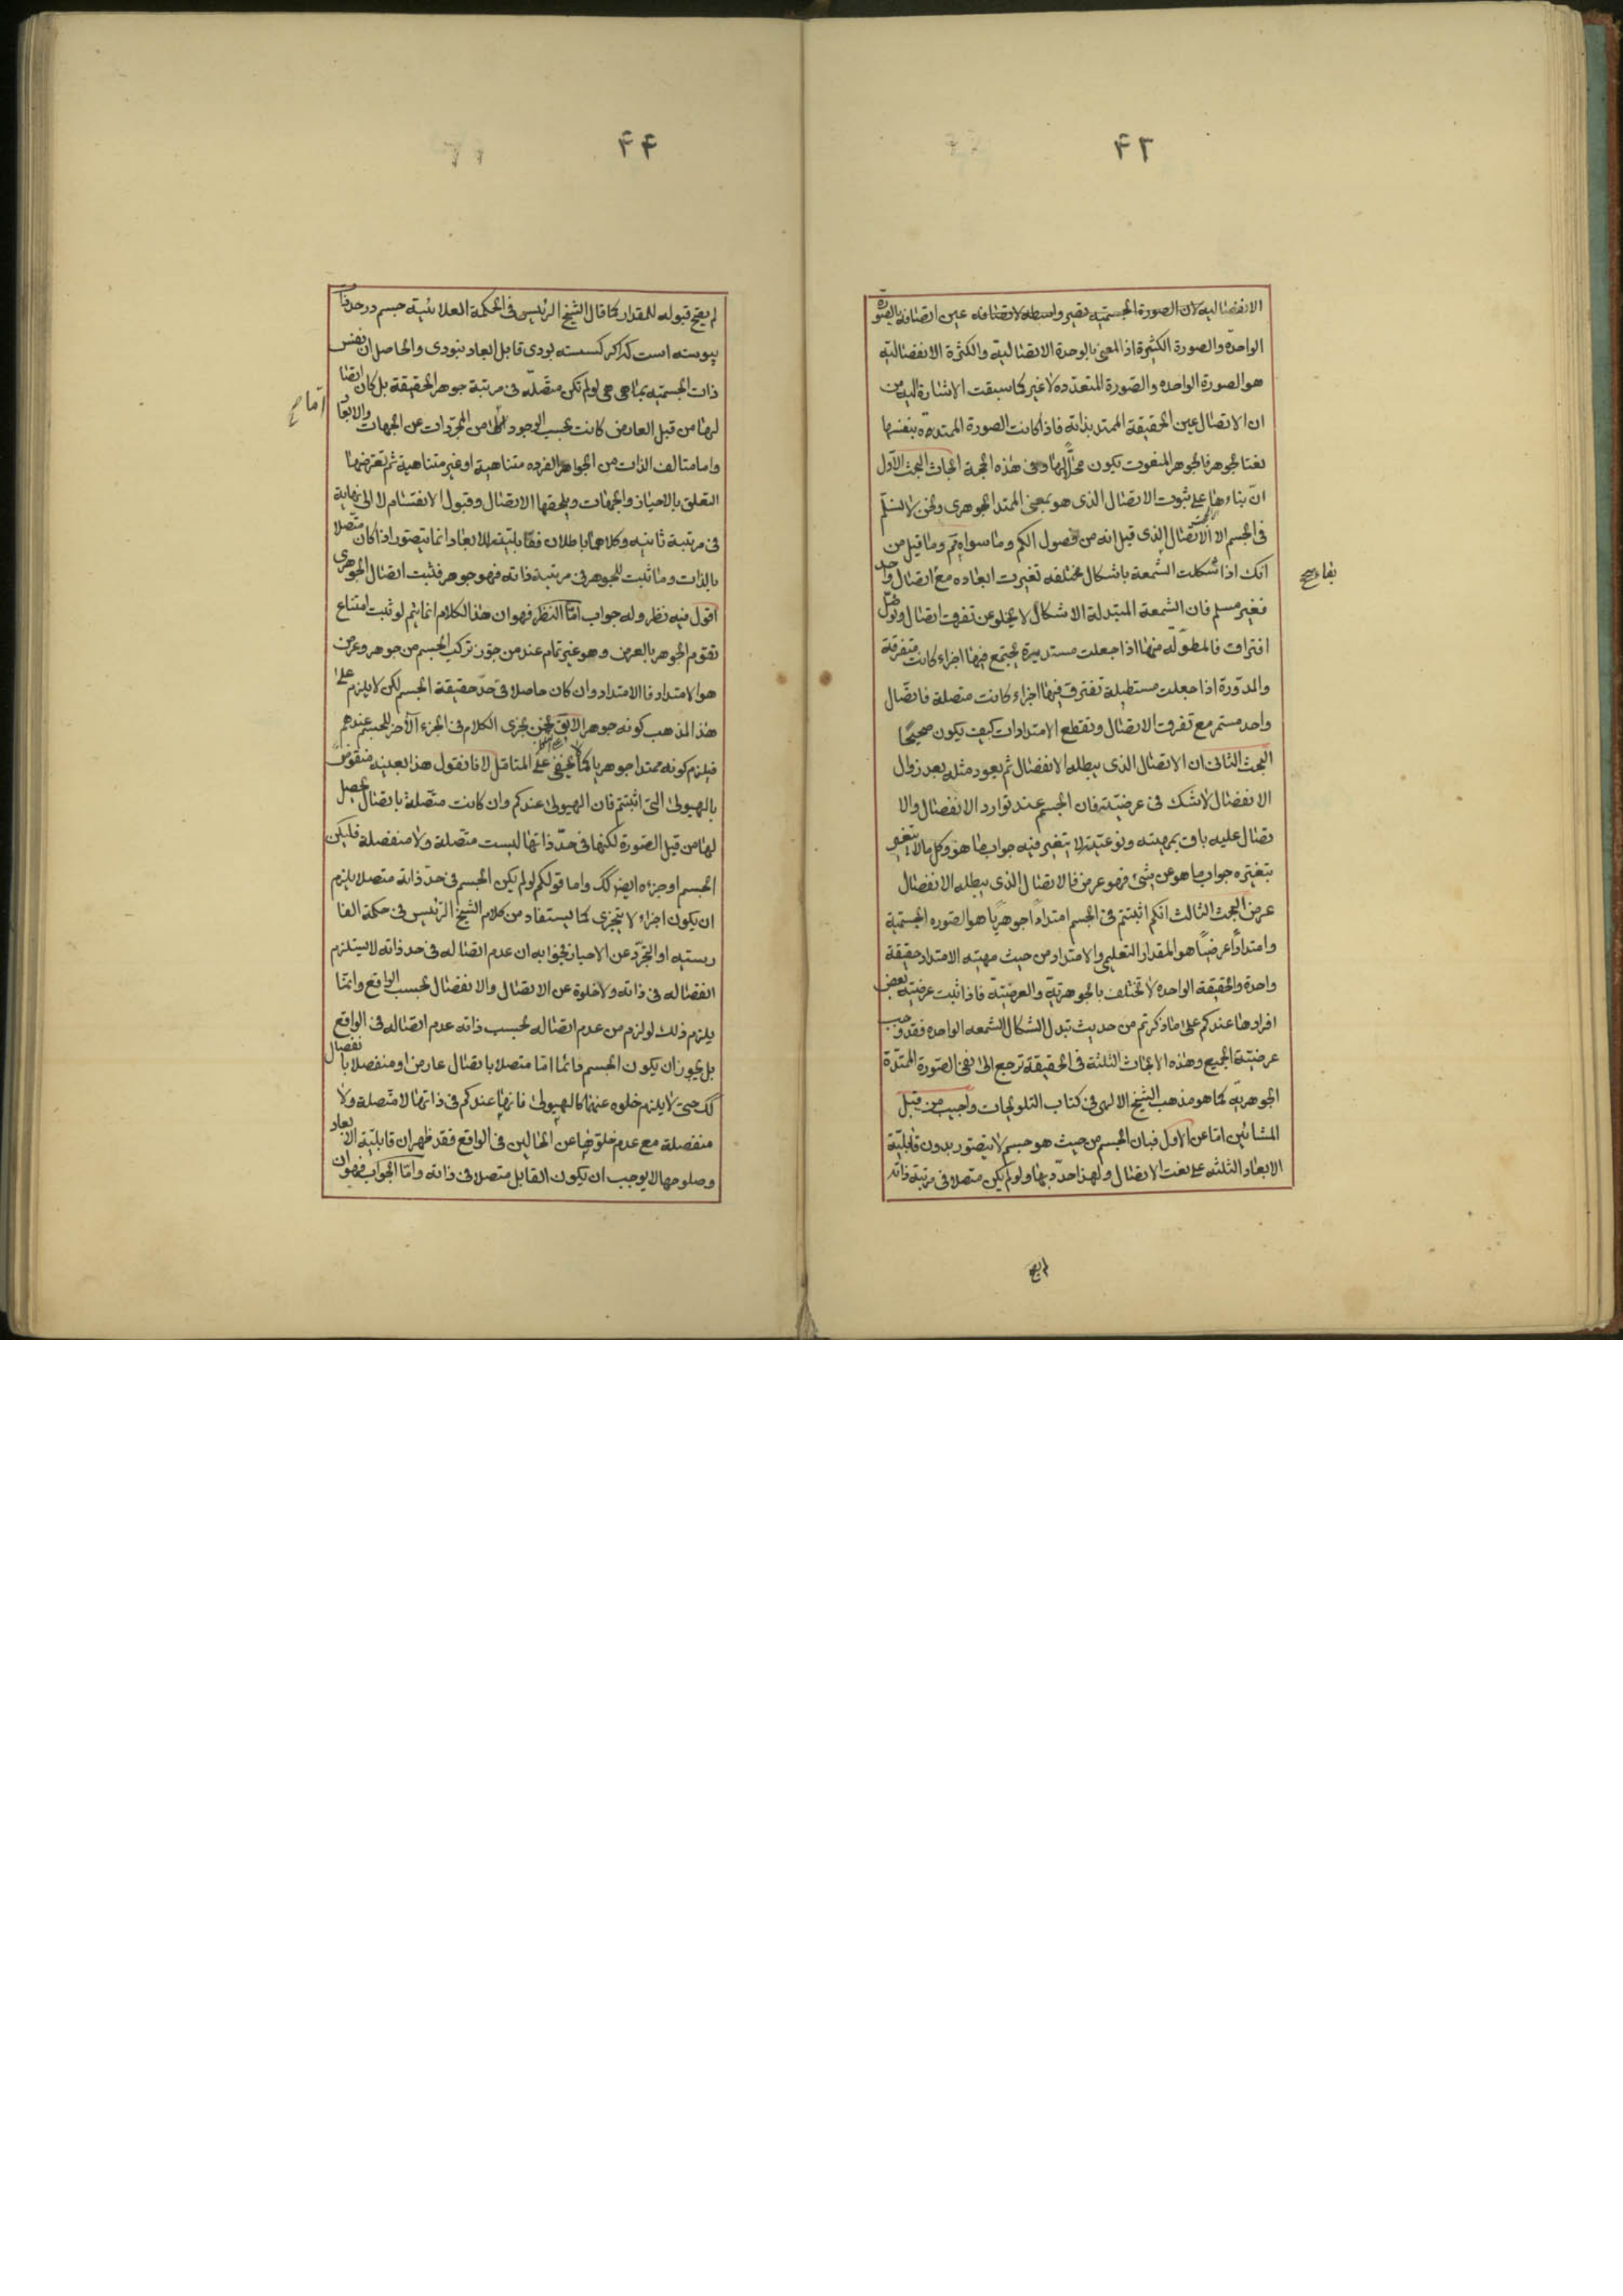 ۴۳
الانفصاليه لان الصورة الجسميّه تصير واسطه لاتصافه عين اتصافه بالصورة
الواحدة والصورة الكثيرة اذ المعنى بالوحدة الاتصاليّة والكثرة الانفصاليّة
هو الصورة الواحده والصّورة المتعدّده لا غير كما سبقت الاشارة اليه من
ان الاتصال عين الحقيقة الممتد بذاته فاذا كانت الصورة الممتده بنفسها
نعتا لجوهر فالجوهر المنعوت يكون محلّا لها وفى هذه الحجة ابحاث البحث الاوّل
انّ بناءها على ثبوت الاتصال الذى هو بمعنى الممتد الجوهرى ونحن لا نسلّم
فى الجسم الا الاتصال الذى قيل انه من فصول الكم وما سواه تم وما قيل من
انك اذا شكلت الشمعة باشكال مختلفه تغيرت ابعاده مع اتصال واحد
فغير مسلم فان الشمعة المتبدلة الاشكال لا يخلو عن تفرق اتصال وتوصّل
افتراق فالمطوّله منها اذا جعلت مستديرة يجتمع فيها اجزاء كانت متفرقة
والمدوّرة اذا جعلت مستطيلة تفترق فيها اجزاء كانت متصلة فاتصّال
واحد مستمر مع تفرق الاتصال وتقطع الامتدادات كيف يكون صحيحًا
البحث الثانى ان الاتصال الذى يبطله الانفصال ثم يعود مثله بعد زوال
الانفصال لا شك فى عرضيّته فان الجسم عند توارد الانفصال والا
تصال عليه باق بمهيته ونوعيّته لا يتغير فيه جواب ما هو وكل ما لا يتغير
بتغيّره جواب ما هو عن شئ فهو عرض فالاتصال الذى يبطله الانفصال
عرض البحث الثالث انكم اثبتتم فى الجسم امتدادًا جوهريًا هو الصّوره الجسمية
وامتدادًا عرضيًا هو المقدار التعليمى والامتداد من حيث مهيته الامتداد حقيقة
واحدة والحقيقة الواحدة لا تختلف بالجوهريّة والعرضيّة فاذا ثبت عرضيّة بعض
افرادها عندكم على ما ذكرتم من حديث تبدل اشكال الشمعه الواحده فقد وجب
عرضيّة الجميع وهذه الابحاث الثلثة فى الحقيقة ترجع الى نفى الصّورة الممتدّة
الجوهريّة كما هو مذهب الشيخ الالهى فى كتاب التلويحات واجيب من قبل
المشائين امّا عن الاول فبان الجسم من حيث هو جسم لا يتصور بدون قابليّة
الابعاد الثلثه على نعت الاتصال ولهذا حدّد بها ولو لم يكن متصلا فى مرتبة ذاته
لم يصح
۴۴
لم يصح قبوله للمقدار كما قال الشيخ الرئيس فى الحكمة العلائيّة جسم در حد ذات
پيوسته است كه اگر گسسته بودى قابل ابعاد نبودى والحاصل ان نفس
ذات الجسميّه بما هى هى لو لم تكن متصّلة فى مرتبة جوهر الحقيقة بل كان اتصا
لها من قبل العارض كانت بحسب الوجود امّا من المجرّدات عن الجهات والابعاد
واما متالف الذات من الجواهر الفرده متناهية او غير متناهية ثم تعرضها
التعلق بالاحياز والجهات ويلحقها الاتصال وقبول الانقسام لا الى نهاية
فى مرتبة ثانيه وكلاهما باطلان فقابليّة الابعاد انما يتصوّر اذا كان متّصلا
بالذات وما ثبت للجوهر فى مرتبة ذاته فهو جوهر فثبت اتصال الجوهرى
اقول فيه نظر وله جواب امّا النظر فهو ان هذا الكلام انما يتم لو ثبت امتناع
تقوم الجوهر بالعرض وهو غير تمام عند من جوّز تركب الجسم من جوهر وعرض
هو الامتداد فالامتداد وان كان حاصلا فى حدّ حقيقة الجسم لكن لا يلزم على
هذا المذهب كونه جوهرا لا يق نحن نجرى الكلام فى الجزء الآخر للجسم عندهم
فيلزم كونه ممتدا جوهريا كما لا يخفى على المتامّل لانا نقول هذا بعينه منقوض
بالهيولى التى اثبتّم فان الهيولى عندكم وان كانت متّصلة باتصال يحصل
لها من قبل الصّورة لكنها فى حدّ ذاتها ليست متصلة ولا منفصلة فليكن
الجسم او جزءه ايضا كك واما قولكم لو لم يكن الجسم فى حدّ ذاته متصلا يلزم
ان يكون اجزاء لا يتجزى كما يستفاد من كلام الشيخ الرئيس فى حكمة الفا
رسيّه او التجرّد عن الاحياز فجوابه ان عدم اتصاله فى حد ذاته لا يستلزم
انفصاله فى ذاته ولا خلوه عن الاتصال والانفصال بحسب الواقع وانمّا
يلزم ذلك لو لزم من عدم اتصاله بحسب ذاته عدم اتصاله فى الواقع
بل يجوز ان يكون الجسم دائما امّا متصلا باتصال عارض او منفصلا بانفصال
كك حتى لا يلزم خلوه عنهما كالهيولى فانها عندكم فى ذاتها لا متّصلة ولا
منفصلة مع عدم خلوّها عن الحالين فى الواقع فقد ظهر ان قابليّة الابعاد
وصلوحها لا يوجب ان يكون القابل متصلا فى ذاته وامّا الجواب فهو ان